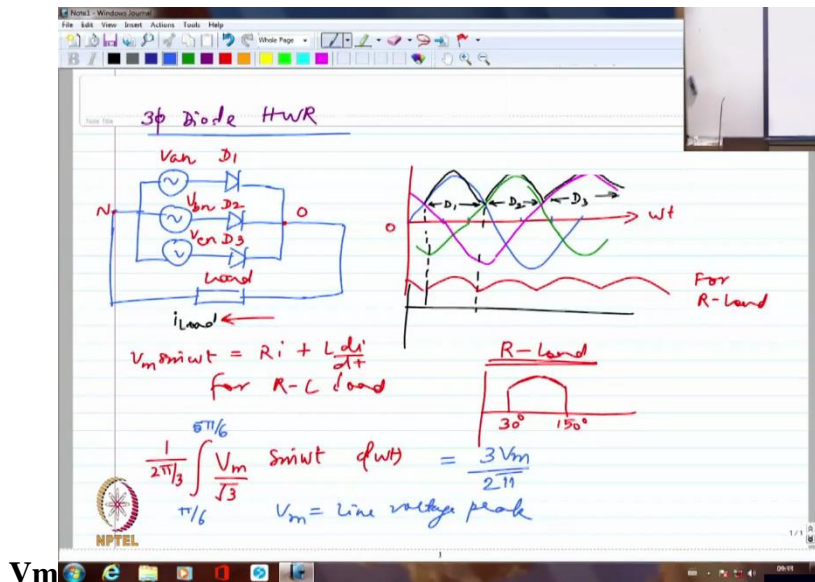 Note1 - Windows Journal
File Edit View Insert Actions Tools Help
Whole Page
B I
Note Title
3ϕ Diode HWR
Van D1
N
Vbn D2
O
Vcn D3
Load
iLoad
O
D1 D2 D3
wt
For
R-Load
Vm sinwt = Ri + L di/dt
for R-L load
R-Load
30° 150°
1/(2π/3) ∫ π/6 5π/6 Vm/√3 sinwt d(wt) = 3Vm/2π
Vm = Line voltage peak
NPTEL
1/1
Vm